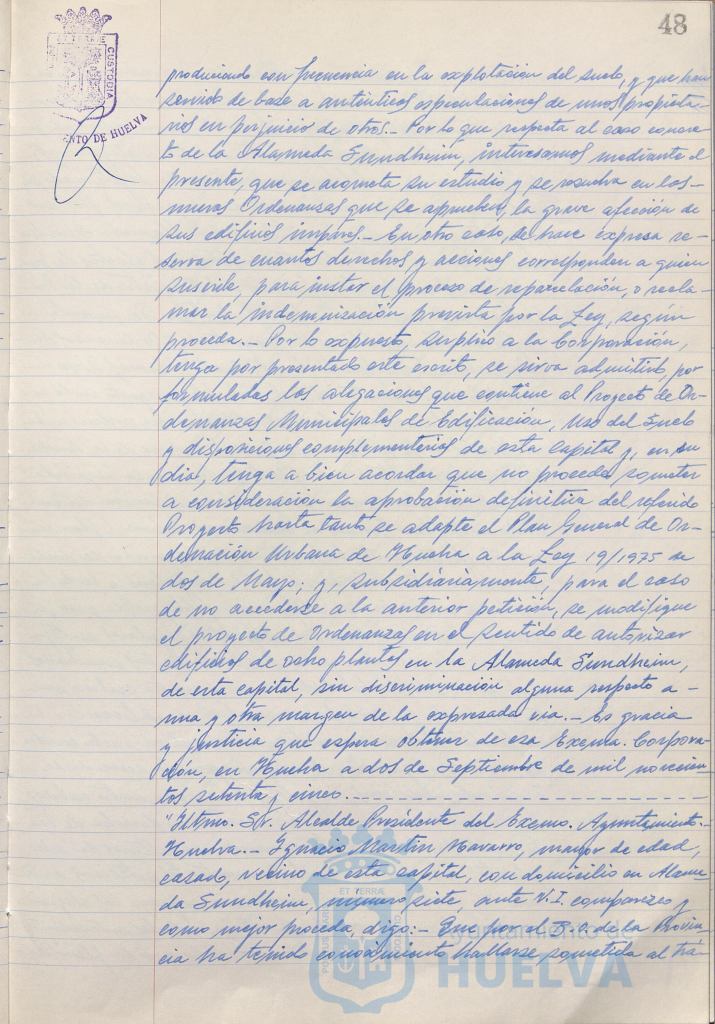 48
CUSTODIA
NTO DE HUELVA
produciendo con frecuencia en la explotación del suelo, y que han
servido de base a auténticas especulaciones de unos propieta-
rios en perjuicio de otros.- Por lo que respecta al caso concre-
to de la Alameda Sundheim, interesamos mediante el
presente, que se acometa su estudio y se resuelva en las
nuevas Ordenanzas que se aprueben, la grave afección de
sus edificios impares.- En otro caso, se hace expresa re-
serva de cuantos derechos y acciones corresponden a quien
suscribe, para instar el proceso de reparcelación, o recla-
mar la indemnización prevista por la Ley, según
proceda.- Por lo expuesto, suplico a la Corporación,
tenga por presentado este escrito, se sirva admitirlo, por
formuladas las alegaciones que contiene al Proyecto de Or-
denanzas Municipales de Edificación, Uso del Suelo
y disposiciones complementarias de esta capital y, en su
día, tenga a bien acordar que no procede someter
a consideración la aprobación definitiva del referido
Proyecto hasta tanto se adapte el Plan General de Or-
denación Urbana de Huelva a la Ley 19/1975 de
dos de Mayo; y, subsidiariamente, para el caso
de no accederse a la anterior petición, se modifique
el proyecto de Ordenanzas en el sentido de autorizar
edificios de ocho plantas en la Alameda Sundheim,
de esta capital, sin discriminación alguna respecto a
una y otra margen de la expresada vía.- Es gracia
y justicia que espera obtener de esa Excma. Corpora-
ción, en Huelva a dos de Septiembre de mil novecien-
tos setenta y cinco.-
"Iltmo. Sr. Alcalde Presidente del Excmo. Ayuntamiento.-
Huelva.- Ignacio Martín Navarro, mayor de edad,
casado, vecino de esta capital, con domicilio en Alame-
da Sundheim, número siete, ante V.I. comparezco y
como mejor proceda, digo:- Que por el B.O. de la Provin-
cia ha tenido conocimiento hallarse sometida al trá-
ET TERRAE
Ayuntamiento de
HUELVA